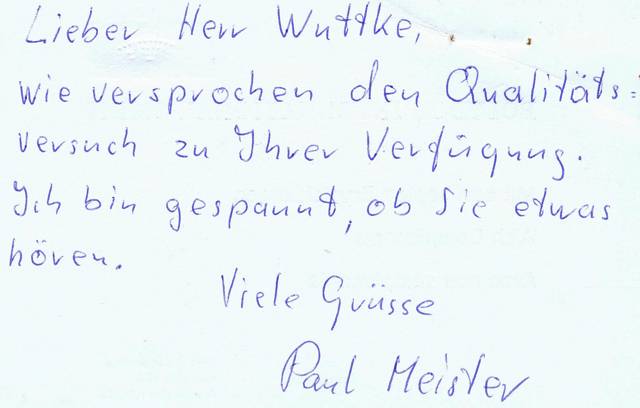 Lieber Herr Wuttke,
wie versprochen den Qualitäts=
versuch zu Ihrer Verfügung.
Ich bin gespannt, ob Sie etwas
hören.
Viele Grüsse
Paul Meister